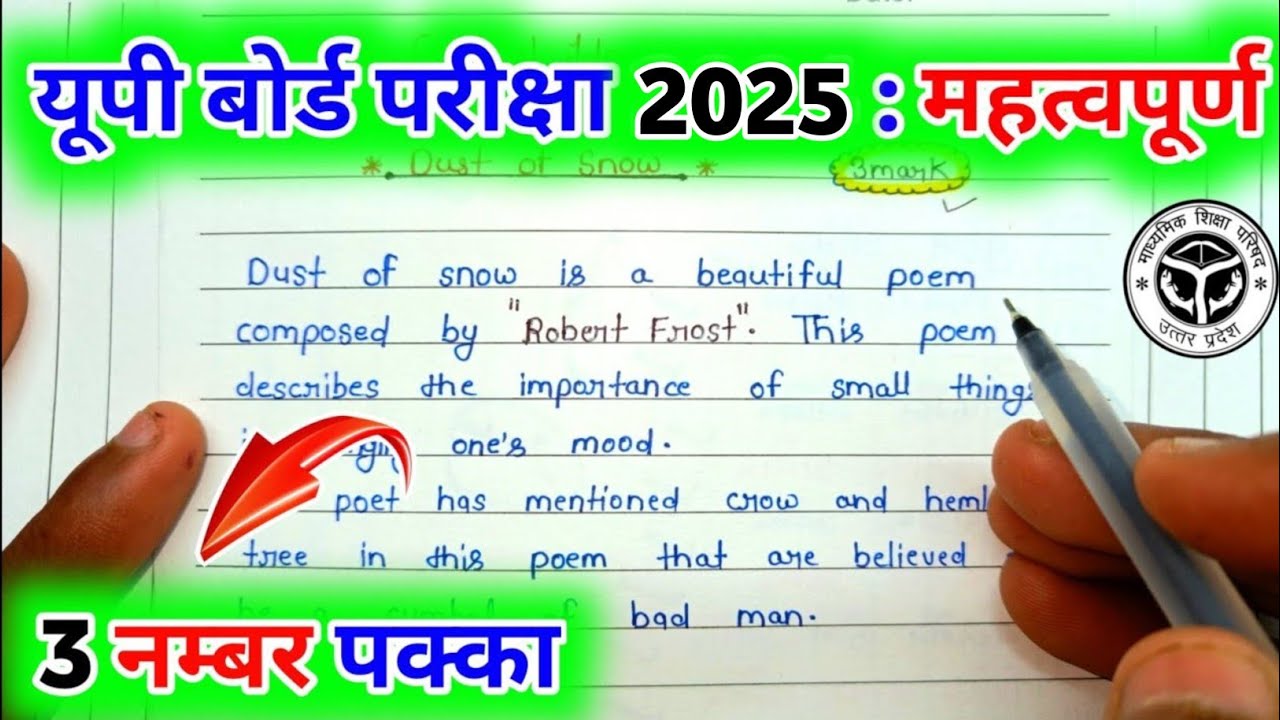 यूपी बोर्ड परीक्षा 2025 : महत्वपूर्ण
* Dust of Snow *
3mark
माध्यमिक शिक्षा परिषद
उत्तर प्रदेश
Dust of snow is a beautiful poem
composed by "Robert Frost". This poem
describes the importance of small things
one's mood.
poet has mentioned crow and
tree in this poem that are believed
bad man.
3 नम्बर पक्का